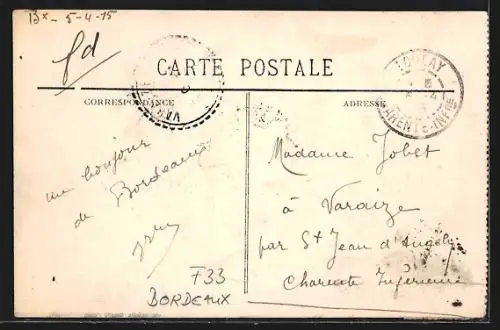 Bx - 5-4-15
fd
CARTE POSTALE
CORRESPONDANCE
ADRESSE
LOULAY
CHARENTE-INFRE
VARAIZE
un bonjour
de Bordeaux
Madame Jobet
à Varaize
par St Jean d'Angely
Charente Inférieure
F33
BORDEAUX